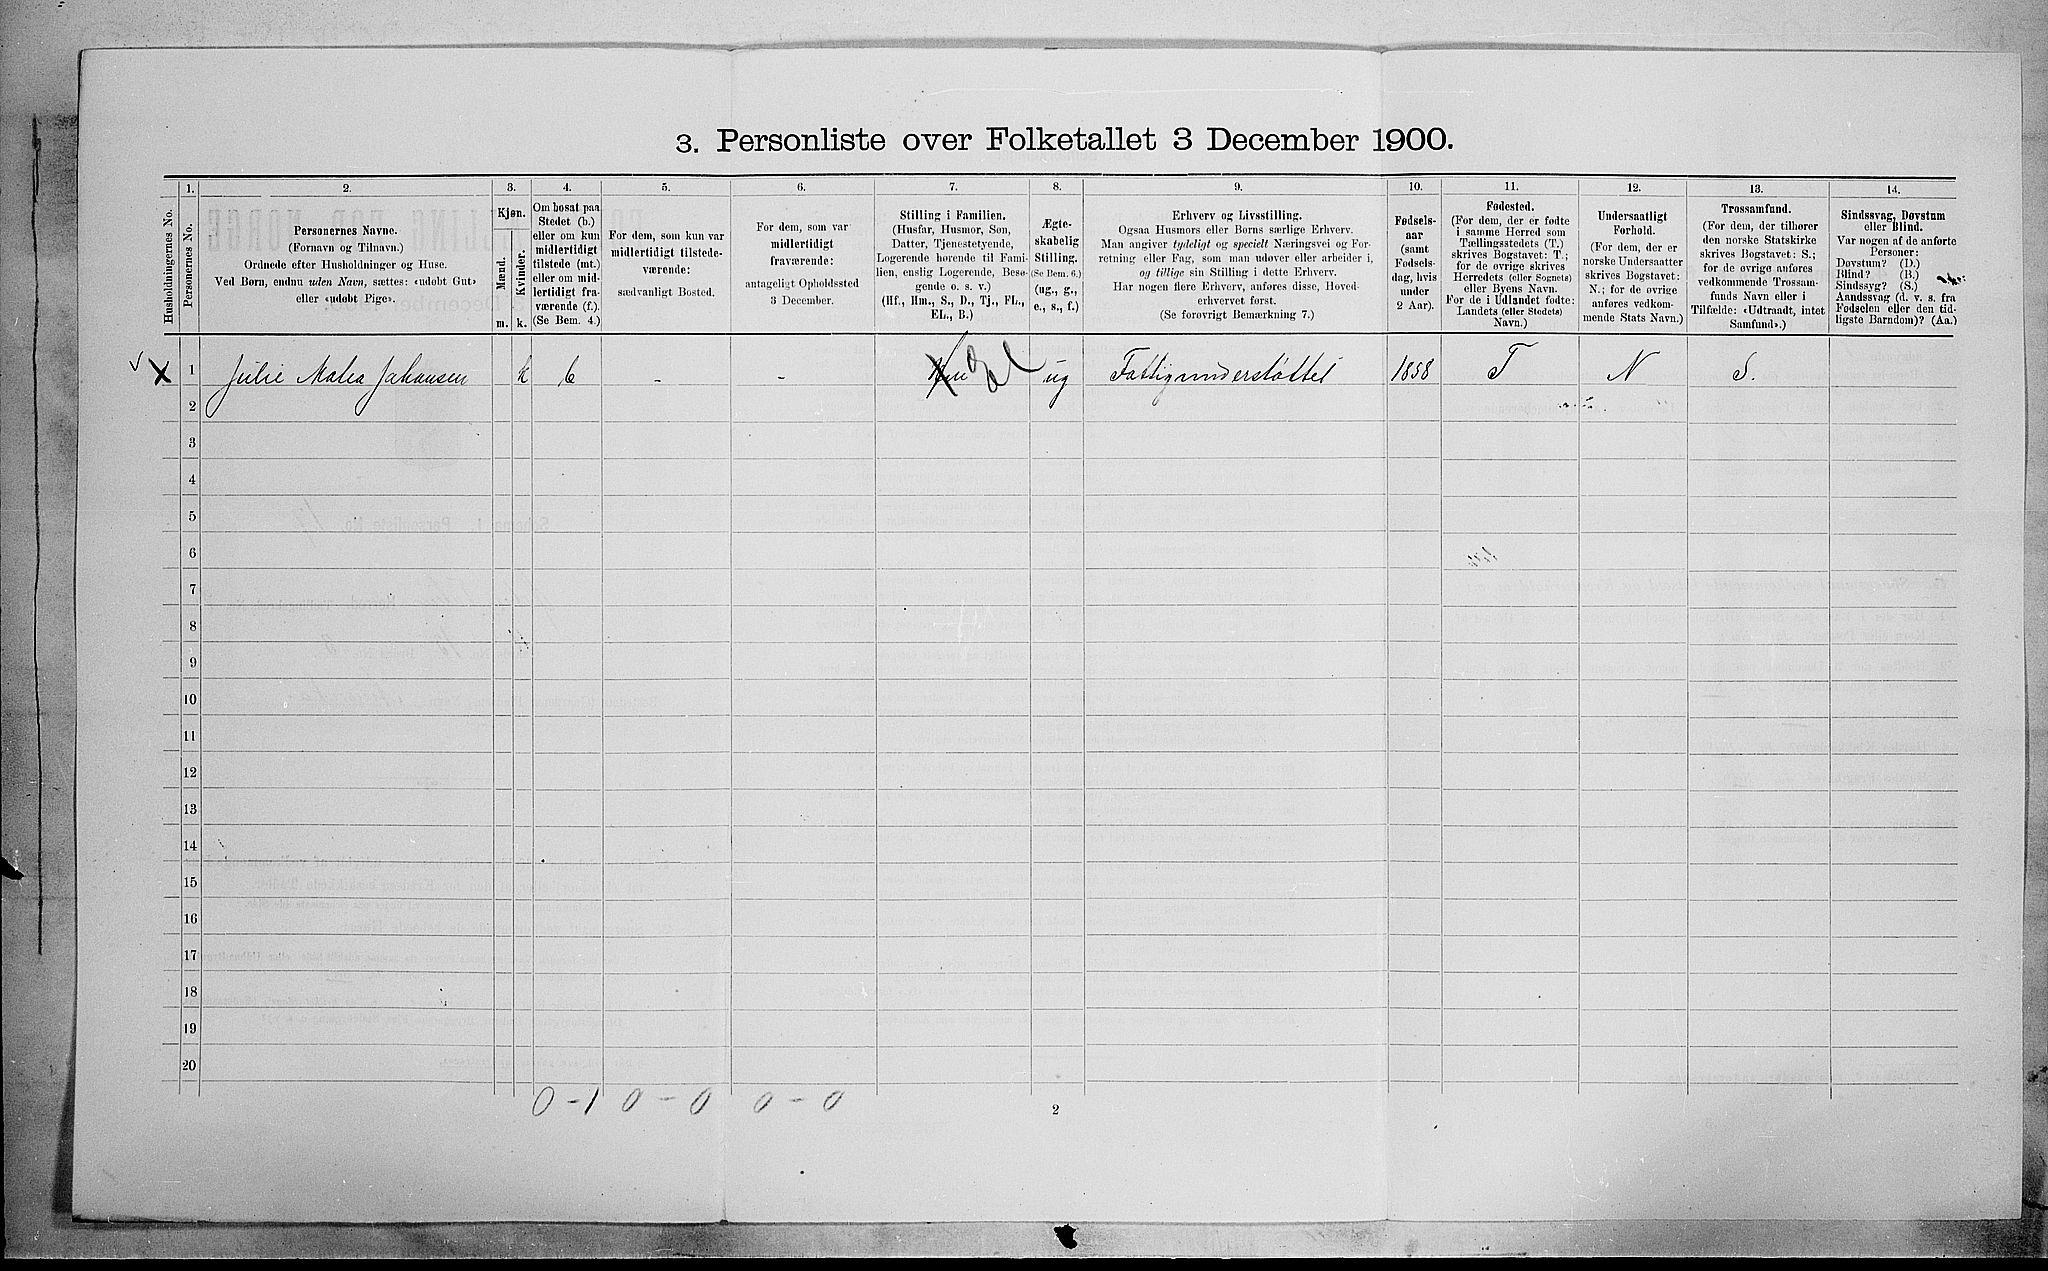 3. Personliste over Folketallet 3 December 1900.
1. 2. 3. 4. 5. 6. 7. 8. 9. 10. 11. 12. 13. 14.
Husholdningernes No.
Personernes No.
Personernes Navne.
(Fornavn og Tilnavn.)
Ordnede efter Husholdninger og Huse.
Ved Børn, endnu uden Navn, sættes: «udøbt Gut»
eller «udøbt Pige».
Kjøn.
Mænd.
Kvinder.
m. k.
Om bosat paa
Stedet (b.)
eller om kun
midlertidigt
tilstede (mt.)
eller om mid-
lertidigt fra-
værende (f.).
(Se Bem. 4.)
For dem, som kun var
midlertidigt tilstede-
værende:
sædvanligt Bosted.
For dem, som var
midlertidigt
fraværende:
antageligt Opholdssted
3 December.
Stilling i Familien.
(Husfar, Husmor, Søn,
Datter, Tjenestetyende,
Logerende hørende til Fami-
lien, enslig Logerende, Besø-
gende o. s. v.)
(Hf., Hm., S., D., Tj., FL.,
EL., B.)
Ægte-
skabelig
Stilling.
(Se Bem. 6.)
(ug., g.,
e., s., f.)
Erhverv og Livsstilling.
Ogsaa Husmors eller Børns særlige Erhverv.
Man angiver tydeligt og specielt Næringsvei og For-
retning eller Fag, som man udøver eller arbeider i,
og tillige sin Stilling i dette Erhverv.
Har nogen flere Erhverv, anføres disse, Hoved-
erhvervet først.
(Se forøvrigt Bemærkning 7.)
Fødsels-
aar
(samt
Fødsels-
dag, hvis
under
2 Aar).
Fødested.
(For dem, der er fødte
i samme Herred som
Tællingsstedets (T.)
skrives Bogstavet: T.;
for de øvrige skrives
Herredets (eller Sognets)
eller Byens Navn.
For de i Udlandet fødte:
Landets (eller Stedets)
Navn.)
Undersaatligt
Forhold.
(For dem, der er
norske Undersaatter
skrives Bogstavet:
N.; for de øvrige
anføres vedkom-
mende Stats Navn.)
Trossamfund.
(For dem, der tilhører
den norske Statskirke
skrives Bogstavet: S.;
for de øvrige anføres
vedkommende Trossam-
funds Navn eller i
Tilfælde: «Udtraadt, intet
Samfund».)
Sindssvag, Døvstum
eller Blind.
Var nogen af de anførte
Personer:
Døvstum? (D.)
Blind? (B.)
Sindssyg? (S.)
Aandssvag (d. v. s. fra
Fødselen eller den tid-
ligste Barndom)? (Aa.)
1 Julie Malea Johansen k b - - el ug Fattigunderstøttet 1858 T N S.
2
3
4
5
6
7
8
9
10
11
12
13
14
15
16
17
18
19
20
0 - 1 0 - 0 0 - 0
2